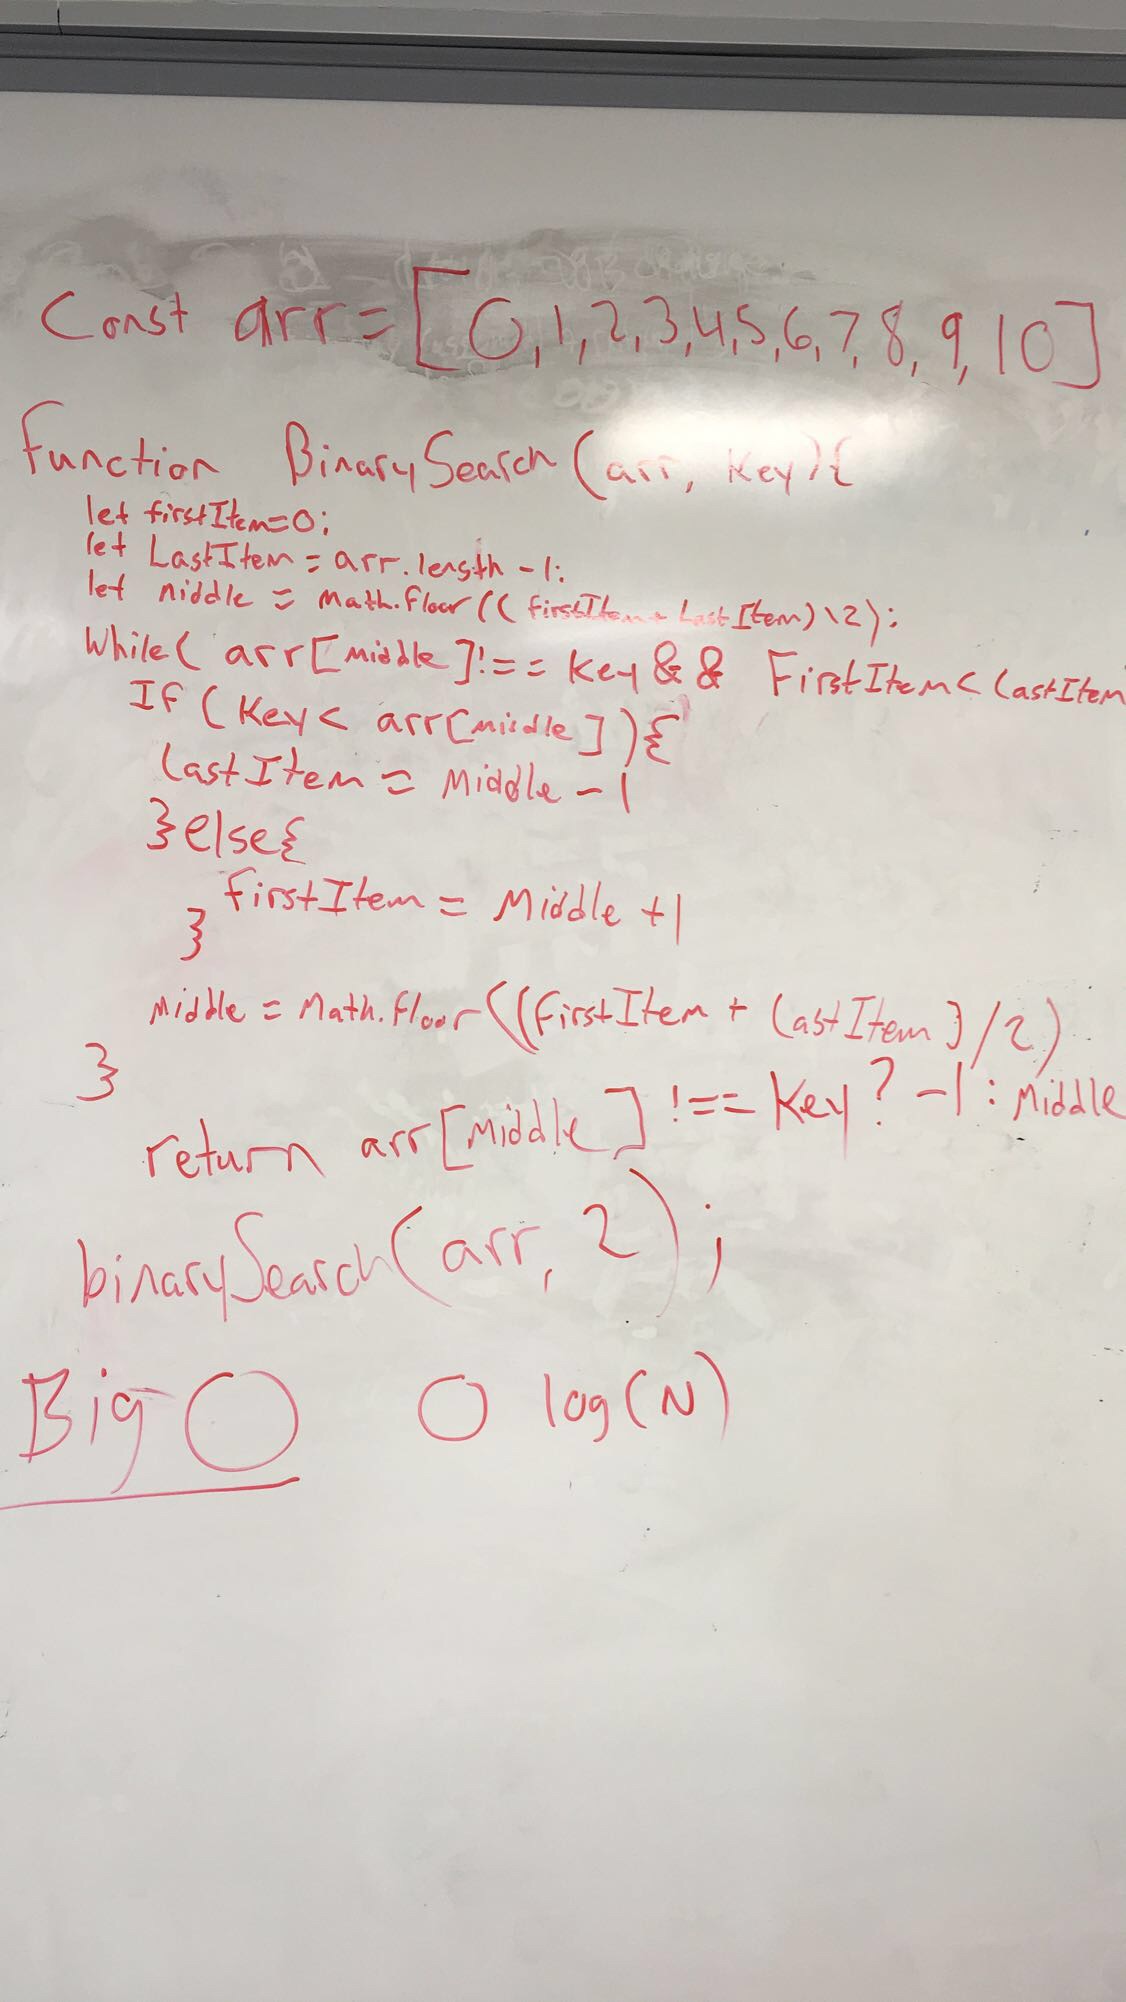 Const arr = [0,1,2,3,4,5,6,7,8,9,10]
function BinarySearch (arr, Key){
let firstItem=0;
let LastItem = arr.length -1;
let middle = Math.floor(( firstItem + LastItem) \2);
While( arr[middle]!== Key && FirstItem< LastItem
If (Key< arr[middle]){
LastItem = Middle -1
}else{
firstItem = Middle +1
}
Middle = Math.floor((firstItem + LastItem)/2)
}
return arr[Middle] !== Key? -1: Middle
binarySearch(arr, 2);
Big O O log(N)